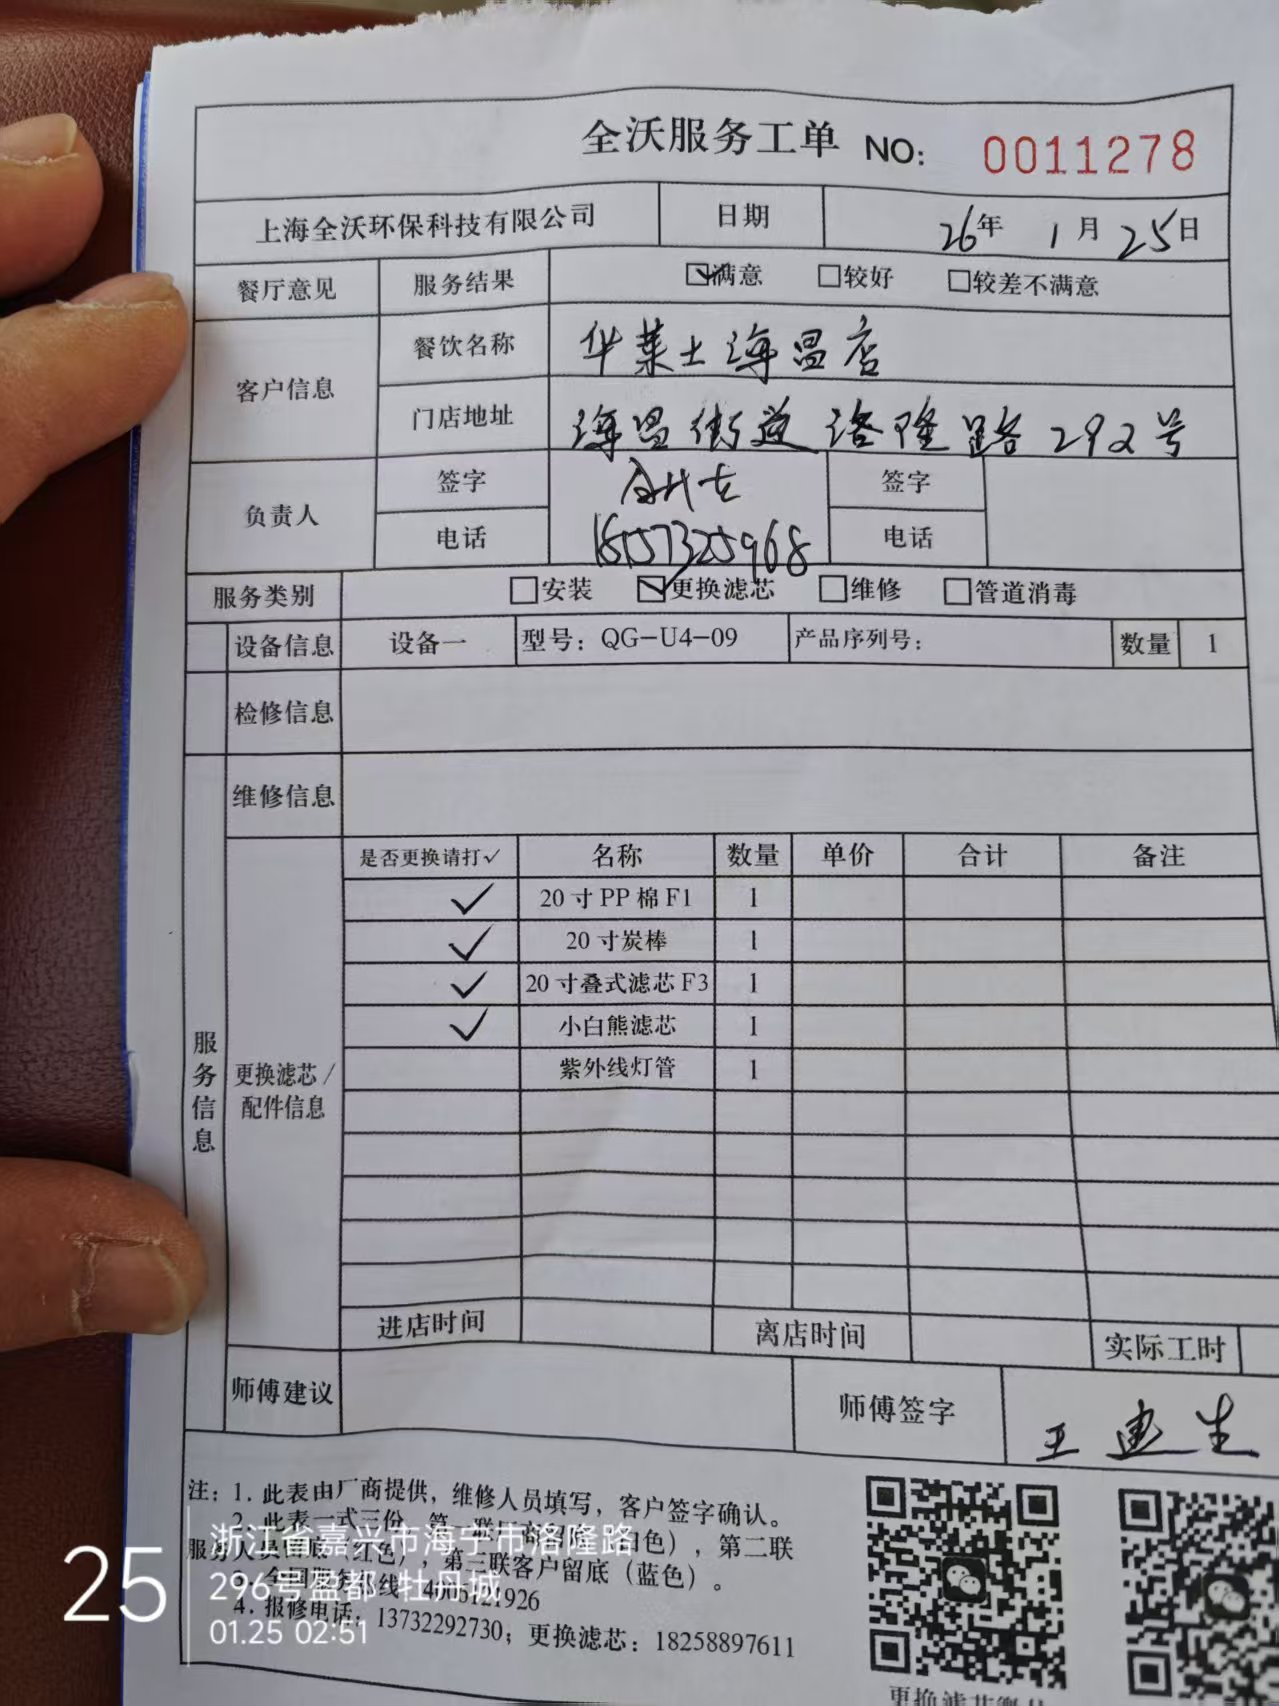 全沃服务工单 NO: 0011278
上海全沃环保科技有限公司 日期 26年 1月 25日
餐厅意见 服务结果 ☑满意 □较好 □较差不满意
客户信息 餐饮名称 华莱士海昌店
门店地址 海昌街道洛隆路292号
负责人 签字 签字
电话 18157325968 电话
服务类别 □安装 ☑更换滤芯 □维修 □管道消毒
设备信息 设备一 型号：QG-U4-09 产品序列号： 数量 1
检修信息
维修信息
服务信息
更换滤芯/配件信息
是否更换请打✓ 名称 数量 单价 合计 备注
✓ 20寸PP棉F1 1
✓ 20寸炭棒 1
✓ 20寸叠式滤芯F3 1
✓ 小白熊滤芯 1
紫外线灯管 1
进店时间 离店时间 实际工时
师傅建议 师傅签字 王建生
注：1. 此表由厂商提供，维修人员填写，客户签字确认。
2. 此表一式三份，第一联 色），第二联
服务人员留底（红色），第三联客户留底（蓝色）。
4. 报修电话：13732292730；更换滤芯：18258897611
25
浙江省嘉兴市海宁市洛隆路
296号盈都·牡丹城
01.25 02:51